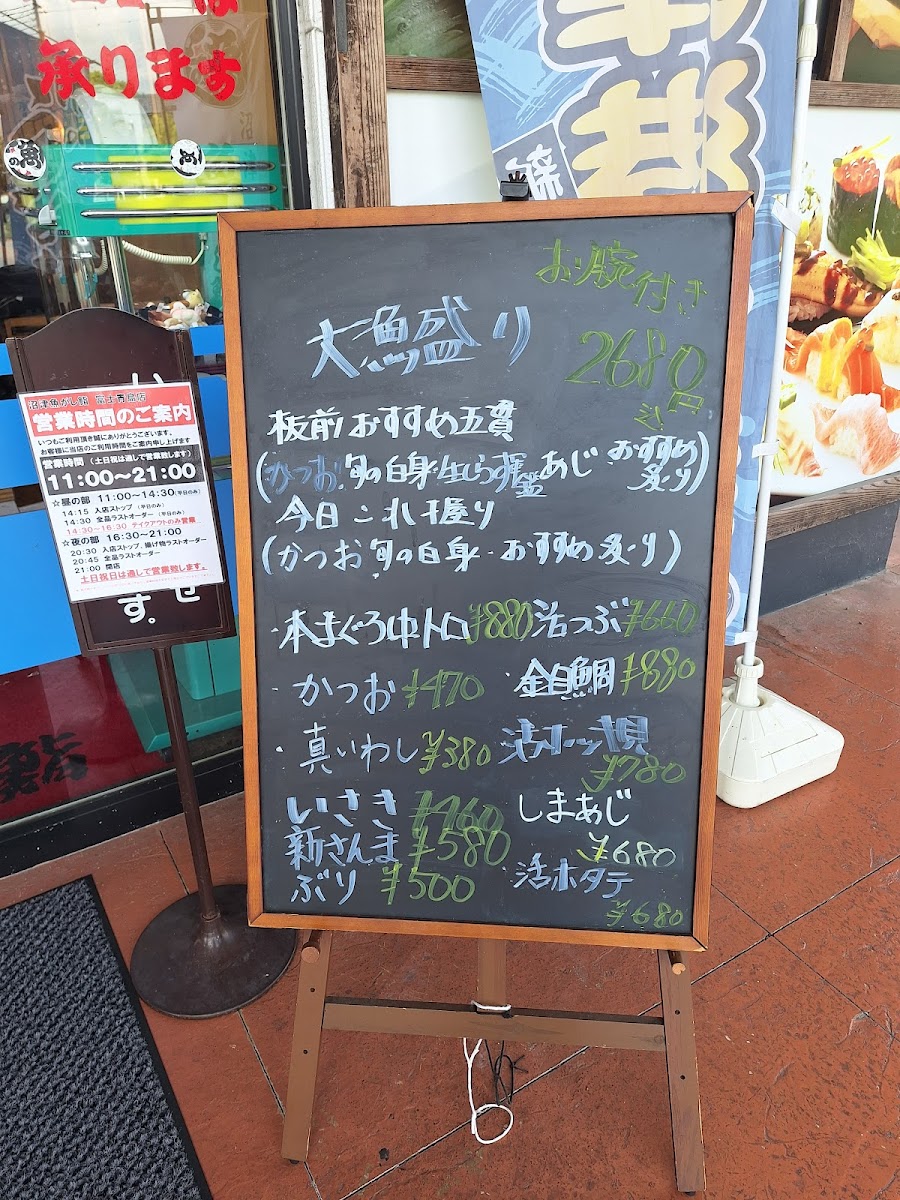 承ります
沼津魚がし鮨 富士青島店
営業時間のご案内
いつもご利用頂き誠にありがとうございます。
お客様に当店のご利用時間をご案内申し上げます
営業時間(土日祝は通しで営業致します)
11:00〜21:00
☆昼の部 11:00〜14:30(平日のみ)
14:15 入店ストップ(平日のみ)
14:30 全品ラストオーダー(平日のみ)
14:30〜16:30 テイクアウトのみ営業
☆夜の部 16:30〜21:00
20:30 入店ストップ、揚げ物ラストオーダー
20:45 全品ラストオーダー
21:00 閉店
土日祝日は通しで営業致します。
す。
鮨
お椀付き
大漁盛り
2680円
込
板前おすすめ五貫
(かつお 旬の白身・生しらす握 あじ おすすめ炙り)
今日これ握り
(かつお 旬の白身・おすすめ炙り)
・本まぐろ中トロ ¥880
活つぶ ¥660
・かつお ¥470
・金目鯛 ¥880
・真いわし ¥380
活ホッキ貝 ¥780
いさき ¥460
しまあじ ¥680
新さんま ¥580
ぶり ¥500
・活ホタテ ¥680